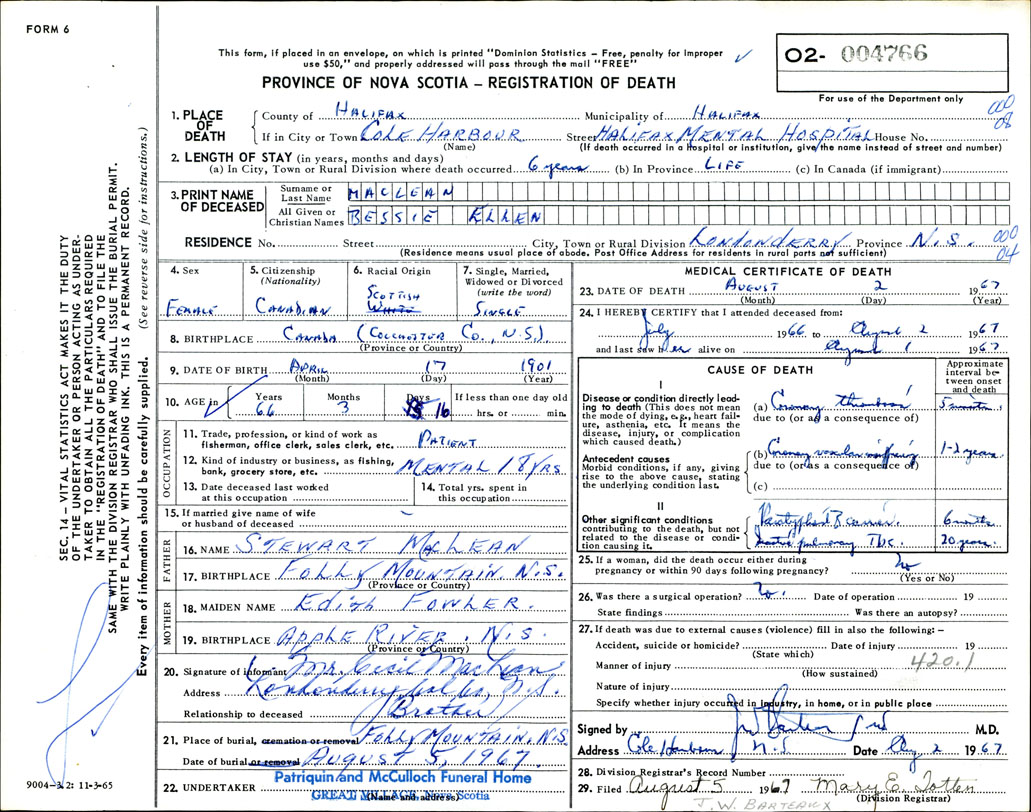 FORM 6
This form, if placed in an envelope, on which is printed "Dominion Statistics – Free, penalty for improper
use $50," and properly addressed will pass through the mail "FREE"
O2- 004766
PROVINCE OF NOVA SCOTIA – REGISTRATION OF DEATH
For use of the Department only
1. PLACE OF DEATH
County of HALIFAX Municipality of HALIFAX
000
08
If in City or Town COLE HARBOUR Street HALIFAX MENTAL HOSPITAL House No.
(Name) (If death occurred in a Hospital or institution, give the name instead of street and number)
2. LENGTH OF STAY (in years, months and days)
(a) In City, Town or Rural Division where death occurred 6 years (b) In Province LIFE (c) In Canada (if immigrant)
3. PRINT NAME OF DECEASED
Surname or Last Name MACLEAN
All Given or Christian Names BESSIE ELLEN
RESIDENCE No. Street City, Town or Rural Division LONDONDERRY Province N.S. 000
04
(Residence means usual place of abode. Post Office Address for residents in rural parts not sufficient)
4. Sex FEMALE
5. Citizenship (Nationality) CANADIAN
6. Racial Origin SCOTTISH WHITE
7. Single, Married, Widowed or Divorced (write the word) SINGLE
8. BIRTHPLACE CANADA (COLCHESTER CO., N.S.)
(Province or Country)
9. DATE OF BIRTH APRIL 17 1901
(Month) (Day) (Year)
10. AGE in Years 66 Months 3 Days 15 16 If less than one day old hrs. or min.
OCCUPATION
11. Trade, profession, or kind of work as fisherman, office clerk, sales clerk, etc. PATIENT
12. Kind of industry or business, as fishing, bank, grocery store, etc. MENTAL 18 YRS
13. Date deceased last worked at this occupation
14. Total yrs. spent in this occupation
15. If married give name of wife or husband of deceased –
FATHER
16. NAME STEWART MACLEAN
17. BIRTHPLACE FOLLY MOUNTAIN, N.S.
(Province or Country)
MOTHER
18. MAIDEN NAME EDITH FOWLER.
19. BIRTHPLACE APPLE RIVER, N.S.
(Province or Country)
20. Signature of informant Mr. Cecil MacLean
Address Londonderry N.S.
Relationship to deceased (Brother)
21. Place of burial, cremation or removal FOLLY MOUNTAIN, N.S.
Date of burial or removal AUGUST 5, 1967
22. UNDERTAKER Patriquin and McCulloch Funeral Home
GREAT VILLAGE, Nova Scotia
(Name and address)
MEDICAL CERTIFICATE OF DEATH
23. DATE OF DEATH AUGUST 2 1967
(Month) (Day) (Year)
24. I HEREBY CERTIFY that I attended deceased from:
July 1966 to August 2 1967
and last saw her alive on August 1 1967
CAUSE OF DEATH
Approximate interval between onset and death
I
Disease or condition directly leading to death (This does not mean the mode of dying, e.g., heart failure, asthenia, etc. It means the disease, injury, or complication which caused death.)
(a) Coronary thrombosis 5 mnts.
due to (or as a consequence of)
Antecedent causes
Morbid conditions, if any, giving rise to the above cause, stating the underlying condition last.
(b) Coronary vascular insufficiency 1-2 years
due to (or as a consequence of)
(c)
II
Other significant conditions contributing to the death, but not related to the disease or condition causing it.
Paratyphoid B carrier. 6 mnths
pulmonary TBC. 20 years.
25. If a woman, did the death occur either during pregnancy or within 90 days following pregnancy? No
(Yes or No)
26. Was there a surgical operation? No. Date of operation 19
State findings Was there an autopsy?
27. If death was due to external causes (violence) fill in also the following: –
Accident, suicide or homicide? Date of injury 19
(State which)
Manner of injury 420.1
(How sustained)
Nature of injury
Specify whether injury occurred in industry, in home, or in public place
Signed by M.D.
Address Cole Harbour N.S Date Aug 2 1967
28. Division Registrar's Record Number
29. Filed August 5 1967 Mary E. Totten
(Division Registrar)
J. W. BARTEAUX
SEC. 14 – VITAL STATISTICS ACT MAKES IT THE DUTY
OF THE UNDERTAKER OR PERSON ACTING AS UNDER-
TAKER TO OBTAIN ALL THE PARTICULARS REQUIRED
IN THE "REGISTRATION OF DEATH" AND TO FILE THE
SAME WITH THE DIVISION REGISTRAR WHO SHALL ISSUE THE BURIAL PERMIT.
WRITE PLAINLY WITH UNFADING INK. THIS IS A PERMANENT RECORD.
Every item of information should be carefully supplied. (See reverse side for instructions.)
9004-3.2: 11-3-65